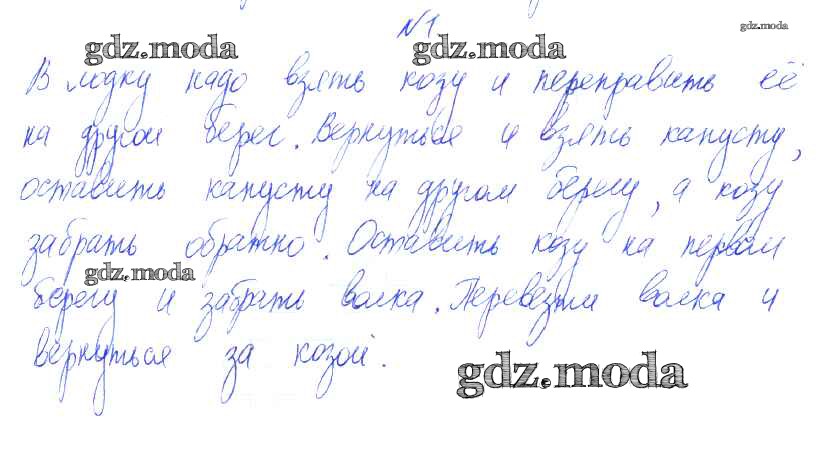 №1
gdz.moda
gdz.moda gdz.moda
В лодку надо взять козу и переправить её
на другой берег. Вернуться и взять капусту,
оставить капусту на другом берегу, а козу
забрать обратно. Оставить козу на первом
gdz.moda
берегу и забрать волка. Перевезти волка и
вернуться за козой.
gdz.moda